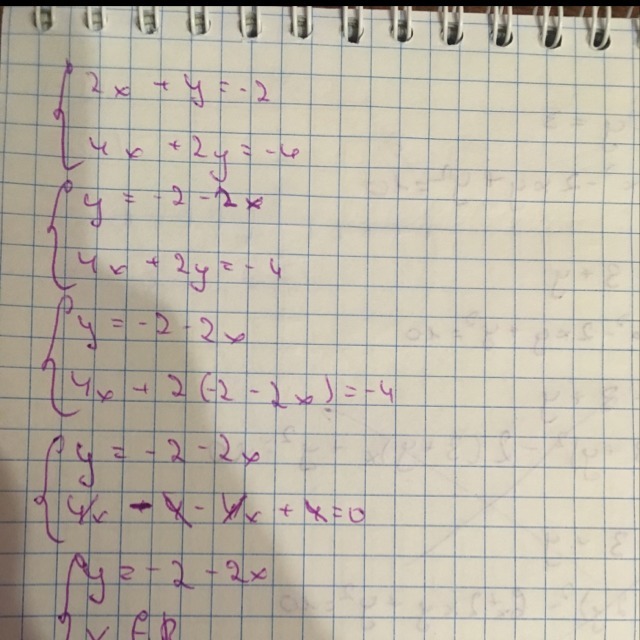 2x + y = -2
4x + 2y = -4
y = -2 - 2x
4x + 2y = -4
y = -2 - 2x
4x + 2(-2 - 2x) = -4
y = -2 - 2x
4x - 4 - 4x + 4 = 0
y = -2 - 2x
x ∈ R